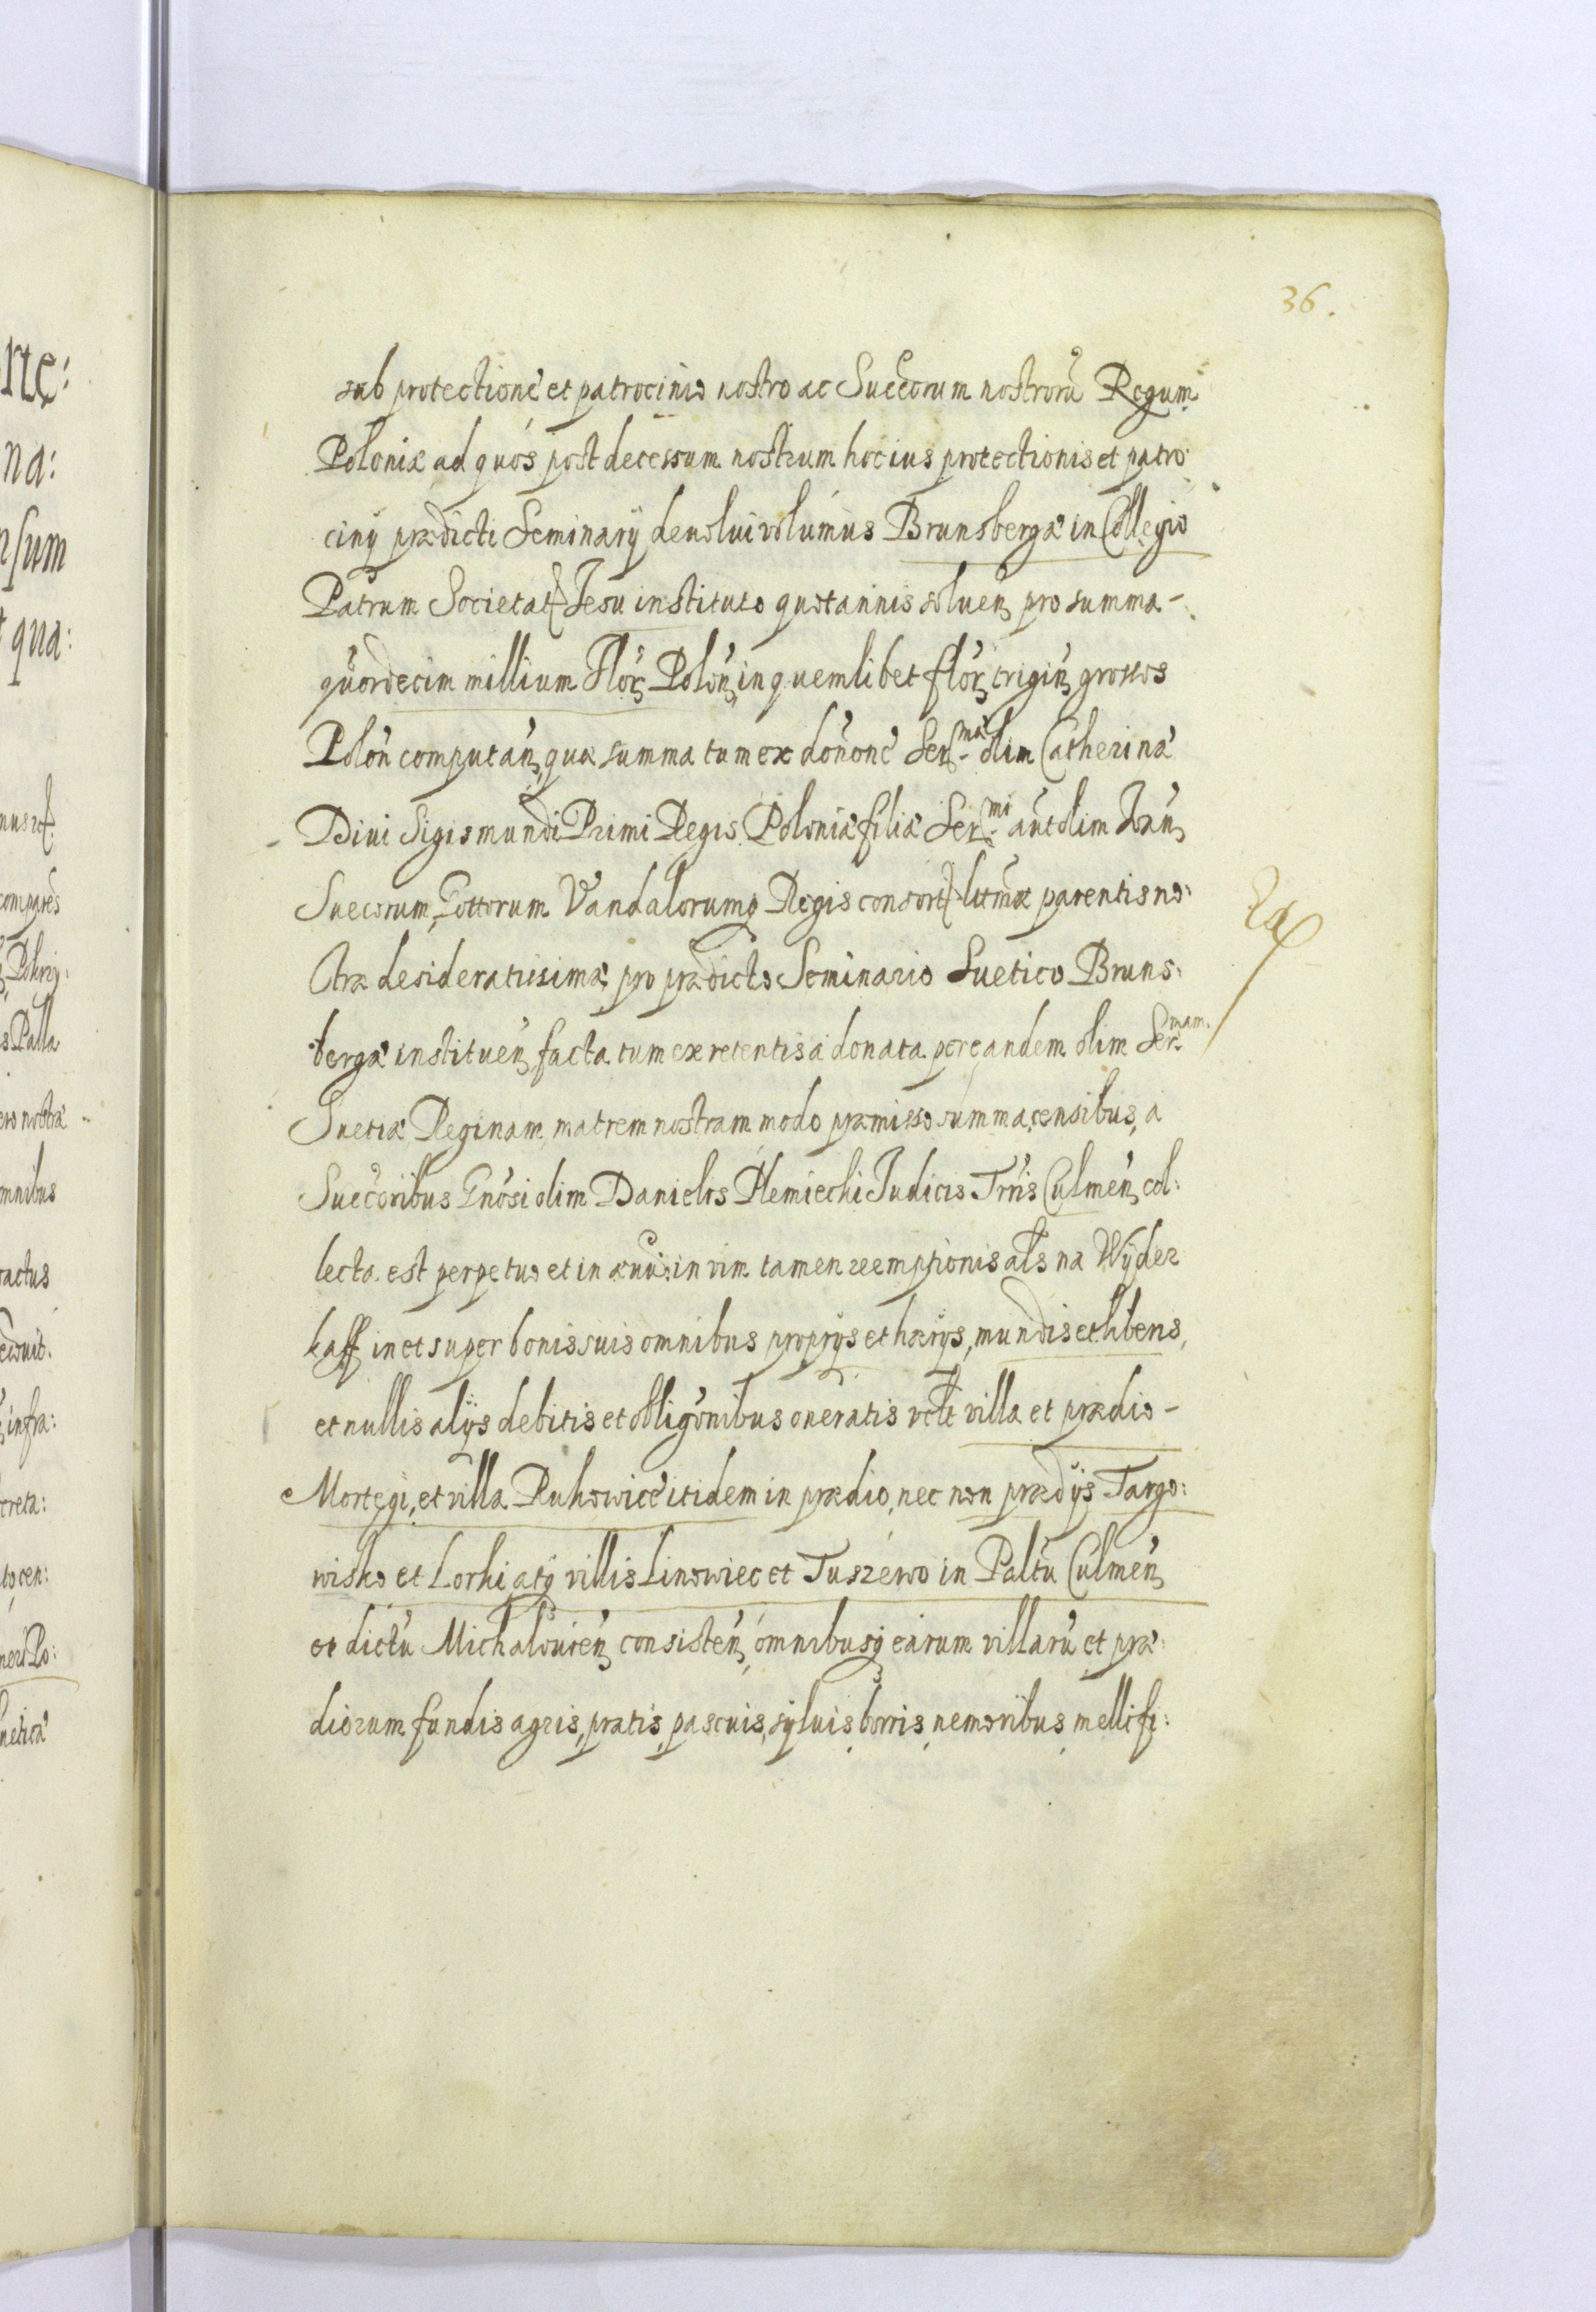 36.
sub protectione et patrocinio nostro ac Succorum nostrorũ Regum
Poloniæ ad quos post decessum nostrum hoc ius protectionis et patro
cinij prædicti Seminarij deuolui volumus Brunsbergæ in Collegio
Patrum Societat Jesu instituto quotannis soluen pro summa -
quordecim millium Flor Polon in quemlibet flor trigin grossos
Polon computan, quæ summa tum ex donone Ser:mæ olim Catherinæ
Diui Sigismundi Primi Regis Poloniæ filiæ Ser:mi aut olim Joan
Suecorum, Gottorum Vandalorumq Regis consort lttmæ parentis no:
stræ desideratissimæ pro prædicto Seminario Suetico Bruns:
bergæ instituen facta tum ex retentis a donata per eandem olim Ser:mam
Suetiæ Reginam, matrem nostram modo præmisso summa, censibus, a
Succoribus Gnosi olim Danielis Plemiechi Judicis Trris Culmen col:
lecta est perpetuo et in æuũ: in vim tamen reemptionis als na Wyder
kaff in et super bonis suis omnibus proprijs et hærijs, mundis et liberis,
et nullis alijs debitis et obligonibus oneratis vtlt villa et prædio -
Mortęgi, et villa Rukowice itidem in prædio, nec non prædijs Targo:
wisko et Lorki atq villis Linowiec et Tuszewo in Paltũ Culmen
et dictũ Michalouien consisten, omnibusq earum villarũ et præ:
diorum fundis agris, pratis, pascuis, syluis, borris, nemoribus, mellifi: